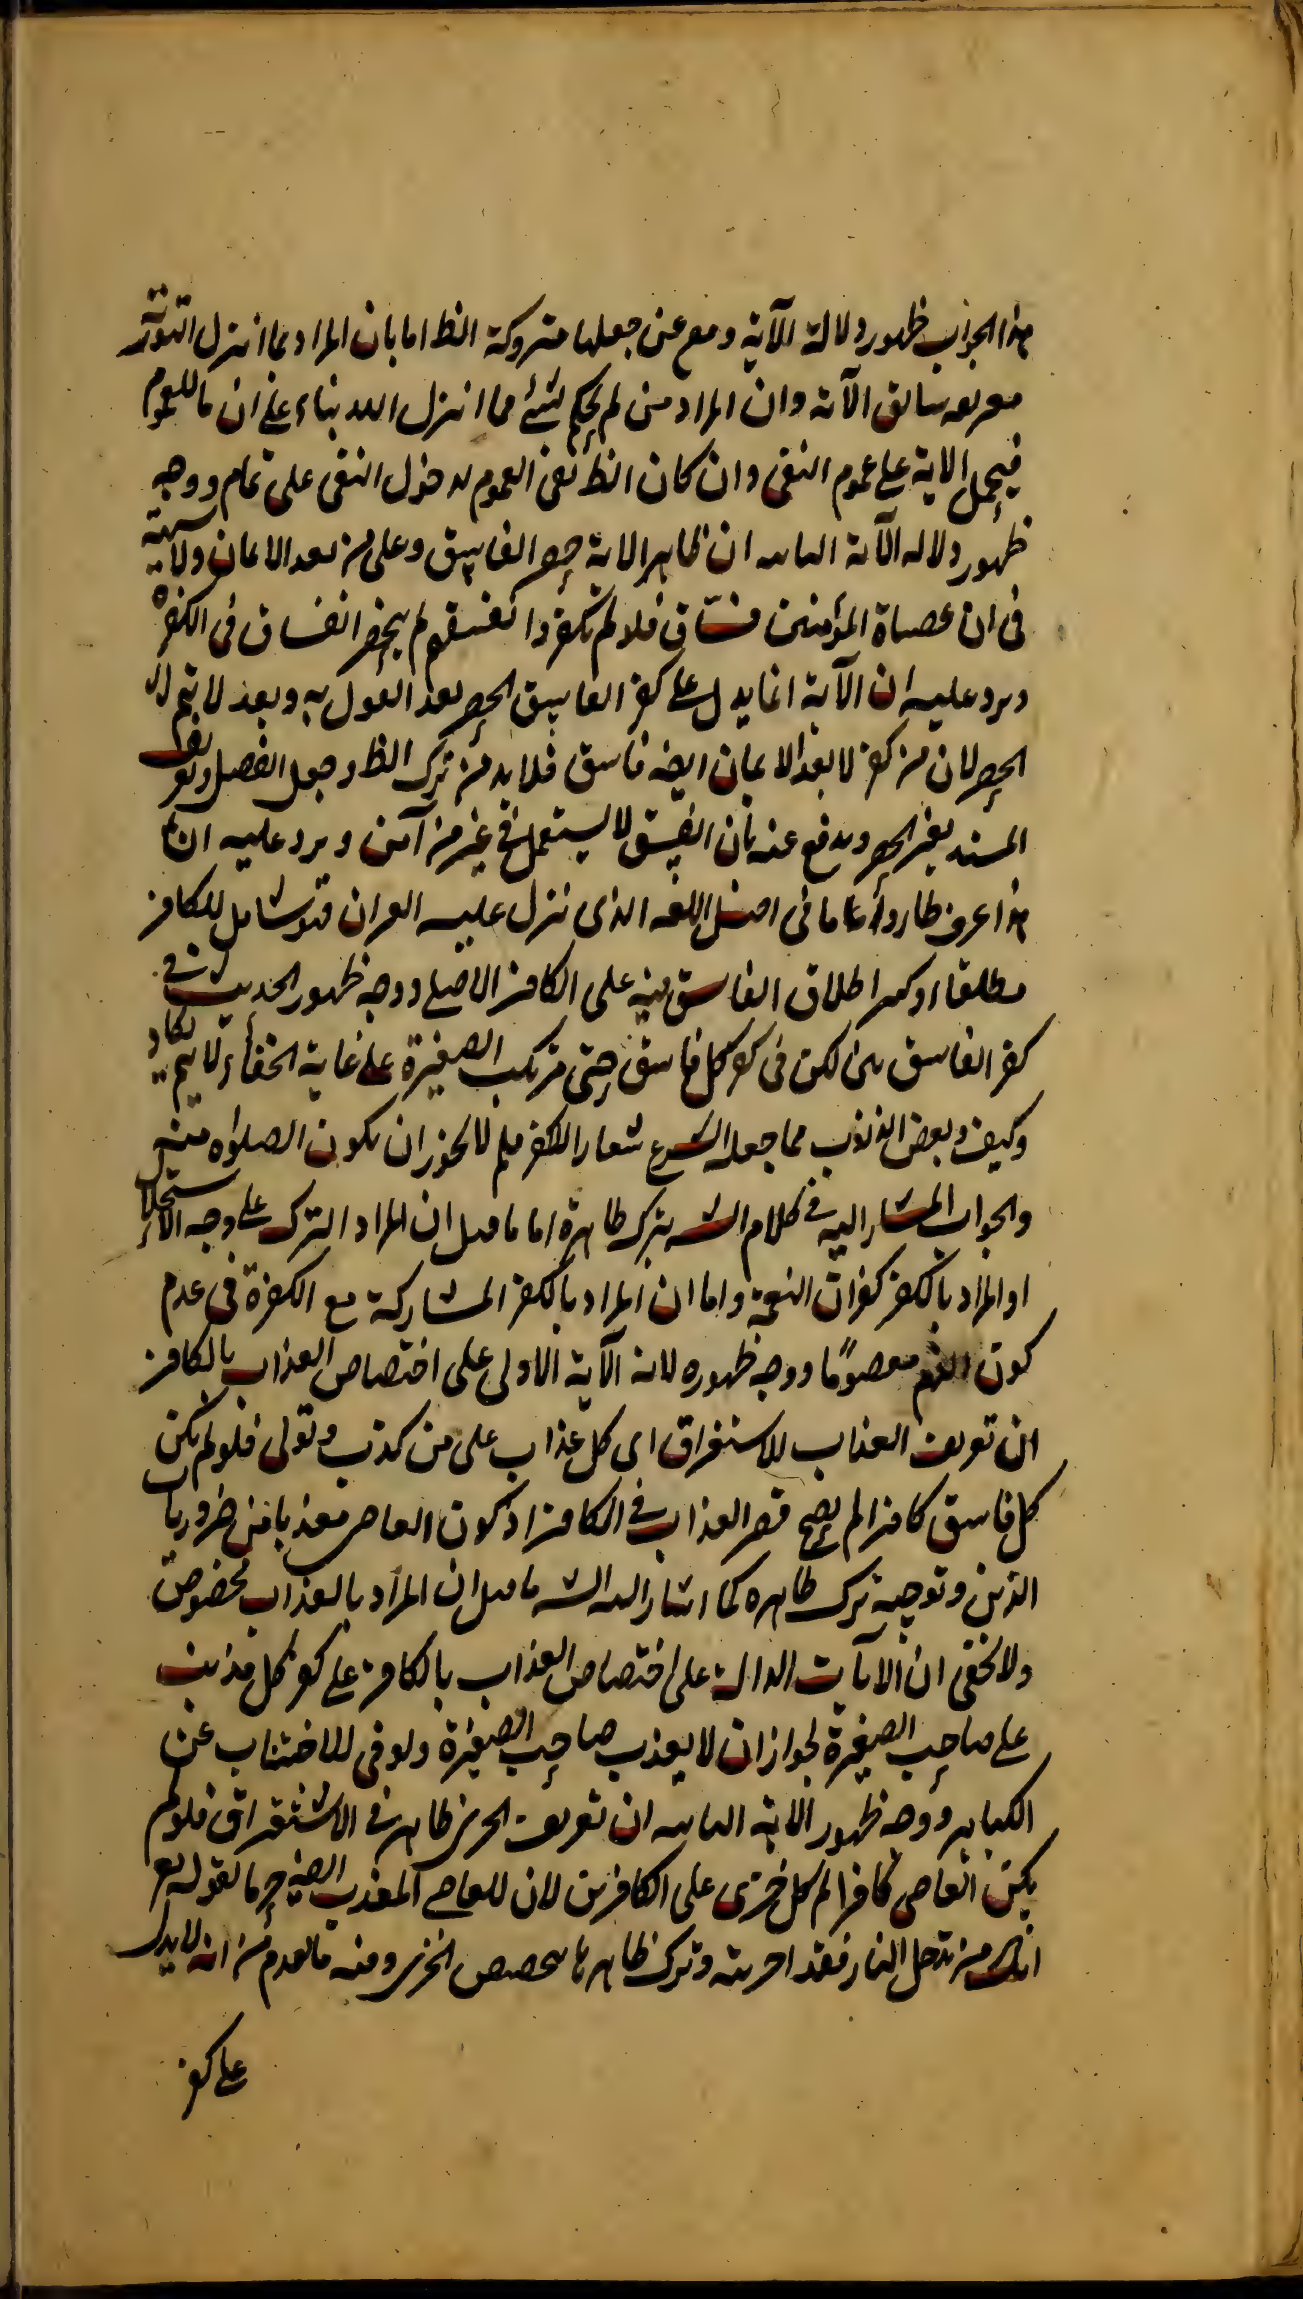 هذا الجواب ظهور دلالة الآية ومع عن جعلها متروكة الظ اما بان المراد بما انزل التورية
بقرينة سابق الآية وان المراد من لم يحكم بشئ مما انزل الله بناء على ان ما للعموم
فيحمل الاية على عموم النفى وان كان الظ نفى العموم لدخول النفى على تمام ووجه
ظهور دلالة الآية الثانية ان ظاهر الاية حصر الفاسق وعلى من بعد الايمان ولا شبهة
فى ان عصاة المؤمنين فساق فلو لم يكفروا بفسقهم لم ينحصر الفساق فى الكفرة
ويرد عليه ان الآية انما يدل على كفر الفاسق الحصر بعد القول به وبعد لا يتم
الحصر لان من كفر لا بعد الايمان ايضه فاسق فلا بد من ترك الظ وجعل الفصل وتعريف
المسند لغير الحصر ويدفع عنه بان الفسق لا يستعمل فى غير من آمن ويرد عليه ان
هذا عرف طار واما ما فى اصل اللغة الذى نزل عليه القران فهو شامل للكافر
مطلقا اطلاق الفاسق فيه على الكافر الاصلى ووجه ظهور الحديث فى
كفر الفاسق بين لكن فى كفر كل فاسق حتى مرتكب الصغيرة على غاية الخفاء لا يتم
وكيف وبعض الذنوب مما جعله الشرع شعار الكفر فلم لا يجوز ان يكون الصلوه منه
والجواب المشار اليه فى كلام الشه بترك ظاهره اما ما قيل ان المراد الترك على وجه الاستحلال
او المراد بالكفر كفران النعمة واما ان المراد بالكفر المشاركة مع الكفرة فى عدم
كون الدم معصومًا ووجه ظهور دلالة الآية الاولى على اختصاص العذاب بالكافر
ان تعريف العذاب للاستغراق اى كل عذاب على من كذب وتولى فلو لم يكن
كل فاسق كافرا لم يصح قصر العذاب فى الكافر اذ كون العاصى معذبا من ضروريات
الدين وتوجيه ترك ظاهره كما اشار اليه الشه ما قيل ان المراد بالعذاب مخصوص
ولا يخفى ان الآيات الدالة على اختصاص العذاب بالكافر على كفر كل مذنب
على صاحب الصغيرة لجواز ان لا يعذب صاحب الصغيرة ولو فى للاجتناب عن
الكبائر ووجه ظهور الاية الثانية ان تعريف الخزى ظاهر فى الاستغراق فلو لم
يكن العاصى كافرا لم كل خزى على الكافرين لان للعاصى المعذب ايضه خزيا لقوله تعه
انك من تدخل النار فقد اخزيته وترك ظاهرها بتخصيص الخزى وفيه ما تقدم من انه لا يدل
على كفر